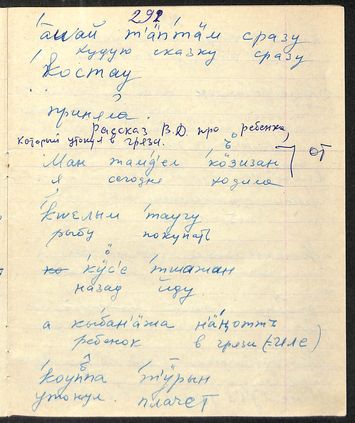 292
а̄шай т'ӓп̄тӓм сразу
худую сказку сразу
'Костау
приняла.
Рассказ В.Д. про ребенка,
который утонул в грязи.
Ман тамд'ел 'кӧзизан от
я сегодня ходила
'кwелым 'таугу
рыбу покупать
'кӱс'е 'тшажан
назад иду.
а кыбан'ӓжа н'ӓңоттъ
ребенок в грязи (-иле)
'коуппа 'т'ӱрын
утонул. плачет